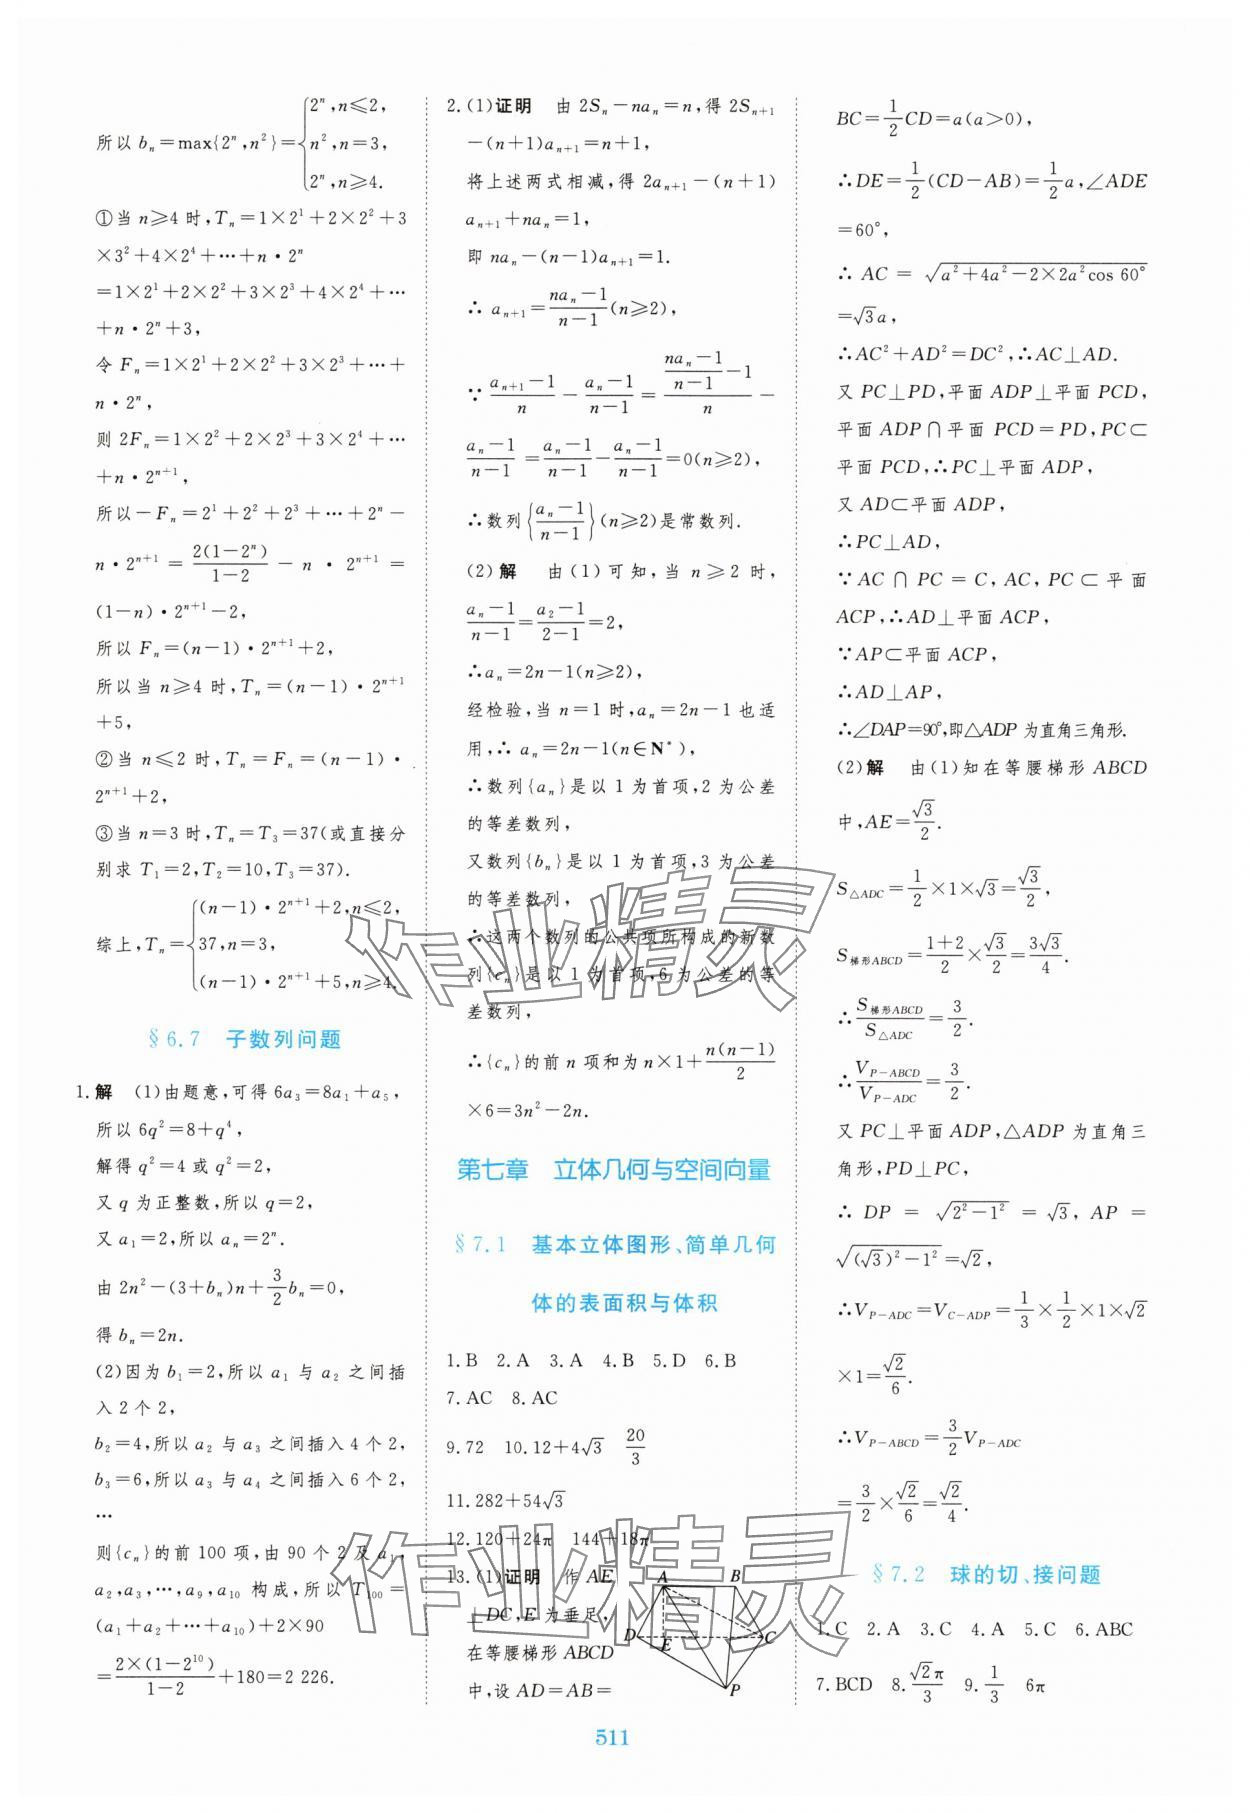 所以 bₙ=max{2ⁿ,n²}={2ⁿ,n≤2,
n²,n=3,
2ⁿ,n≥4.
①当 n≥4 时,Tₙ=1×2¹+2×2²+3
×3²+4×2⁴+…+n·2ⁿ
=1×2¹+2×2²+3×2³+4×2⁴+…
+n·2ⁿ+3,
令 Fₙ=1×2¹+2×2²+3×2³+…+
n·2ⁿ,
则 2Fₙ=1×2²+2×2³+3×2⁴+…
+n·2ⁿ⁺¹,
所以-Fₙ=2¹+2²+2³+…+2ⁿ-
n·2ⁿ⁺¹=2(1-2ⁿ)/(1-2)-n·2ⁿ⁺¹=
(1-n)·2ⁿ⁺¹-2,
所以 Fₙ=(n-1)·2ⁿ⁺¹+2,
所以当 n≥4 时,Tₙ=(n-1)·2ⁿ⁺¹
+5,
②当 n≤2 时,Tₙ=Fₙ=(n-1)·
2ⁿ⁺¹+2,
③当 n=3 时,Tₙ=T₃=37(或直接分
别求 T₁=2,T₂=10,T₃=37).
综上,Tₙ={(n-1)·2ⁿ⁺¹+2,n≤2,
37,n=3,
(n-1)·2ⁿ⁺¹+5,n≥4.
§6.7 子数列问题
1.解 (1)由题意,可得 6a₃=8a₁+a₅,
所以 6q²=8+q⁴,
解得 q²=4 或 q²=2,
又 q 为正整数,所以 q=2,
又 a₁=2,所以 aₙ=2ⁿ.
由 2n²-(3+bₙ)n+3/2bₙ=0,
得 bₙ=2n.
(2)因为 b₁=2,所以 a₁ 与 a₂ 之间插
入 2 个 2,
b₂=4,所以 a₂ 与 a₃ 之间插入 4 个 2,
b₃=6,所以 a₃ 与 a₄ 之间插入 6 个 2,
…
则{cₙ}的前 100 项,由 90 个 2 及 a₁,
a₂,a₃,…,a₉,a₁₀ 构成,所以 T₁₀₀=
(a₁+a₂+…+a₁₀)+2×90
=2×(1-2¹⁰)/(1-2)+180=2 226.
2.(1)证明 由 2Sₙ-naₙ=n,得 2Sₙ₊₁
-(n+1)aₙ₊₁=n+1,
将上述两式相减,得 2aₙ₊₁-(n+1)
aₙ₊₁+naₙ=1,
即 naₙ-(n-1)aₙ₊₁=1.
∴aₙ₊₁=(naₙ-1)/(n-1)(n≥2),
∵(aₙ₊₁-1)/n-(aₙ-1)/(n-1)=((naₙ-1)/(n-1)-1)/n-
(aₙ-1)/(n-1)=(aₙ-1)/(n-1)-(aₙ-1)/(n-1)=0(n≥2),
∴数列{(aₙ-1)/(n-1)}(n≥2)是常数列.
(2)解 由(1)可知,当 n≥2 时,
(aₙ-1)/(n-1)=(a₂-1)/(2-1)=2,
∴aₙ=2n-1(n≥2),
经检验,当 n=1 时,aₙ=2n-1 也适
用,∴aₙ=2n-1(n∈N*),
∴数列{aₙ}是以 1 为首项,2 为公差
的等差数列,
又数列{bₙ}是以 1 为首项,3 为公差
的等差数列,
∴这两个数列的公共项所构成的新数
列{cₙ}是以 1 为首项,6 为公差的等
差数列,
∴{cₙ}的前 n 项和为 n×1+n(n-1)/2
×6=3n²-2n.
第七章 立体几何与空间向量
§7.1 基本立体图形、简单几何
体的表面积与体积
1.B 2.A 3.A 4.B 5.D 6.B
7.AC 8.AC
9.72 10.12+4√3 20/3
11.282+54√3
12.120+24π 144+18π
13.(1)证明 作 AE
⊥DC,E 为垂足,
在等腰梯形 ABCD
中,设 AD=AB=
A B
D E C
P
BC=1/2CD=a(a>0),
∴DE=1/2(CD-AB)=1/2a,∠ADE
=60°,
∴AC=√(a²+4a²-2×2a²cos 60°)
=√3a,
∴AC²+AD²=DC²,∴AC⊥AD.
又 PC⊥PD,平面 ADP⊥平面 PCD,
平面 ADP∩平面 PCD=PD,PC⊂
平面 PCD,∴PC⊥平面 ADP,
又 AD⊂平面 ADP,
∴PC⊥AD,
∵AC∩PC=C,AC,PC⊂平面
ACP,∴AD⊥平面 ACP,
∵AP⊂平面 ACP,
∴AD⊥AP,
∴∠DAP=90°,即△ADP 为直角三角形.
(2)解 由(1)知在等腰梯形 ABCD
中,AE=√3/2.
S△ADC=1/2×1×√3=√3/2,
S梯形ABCD=(1+2)/2×√3/2=3√3/4.
∴S梯形ABCD/S△ADC=3/2.
∴V_P-ABCD/V_P-ADC=3/2.
又 PC⊥平面 ADP,△ADP 为直角三
角形,PD⊥PC,
∴DP=√(2²-1²)=√3,AP=
√((√3)²-1²)=√2,
∴V_P-ADC=V_C-ADP=1/3×1/2×1×√2
×1=√2/6.
∴V_P-ABCD=3/2V_P-ADC
=3/2×√2/6=√2/4.
§7.2 球的切、接问题
1.C 2.A 3.C 4.A 5.C 6.ABC
7.BCD 8.√2π/3 9.1/3 6π
511
作业精灵
作业精灵